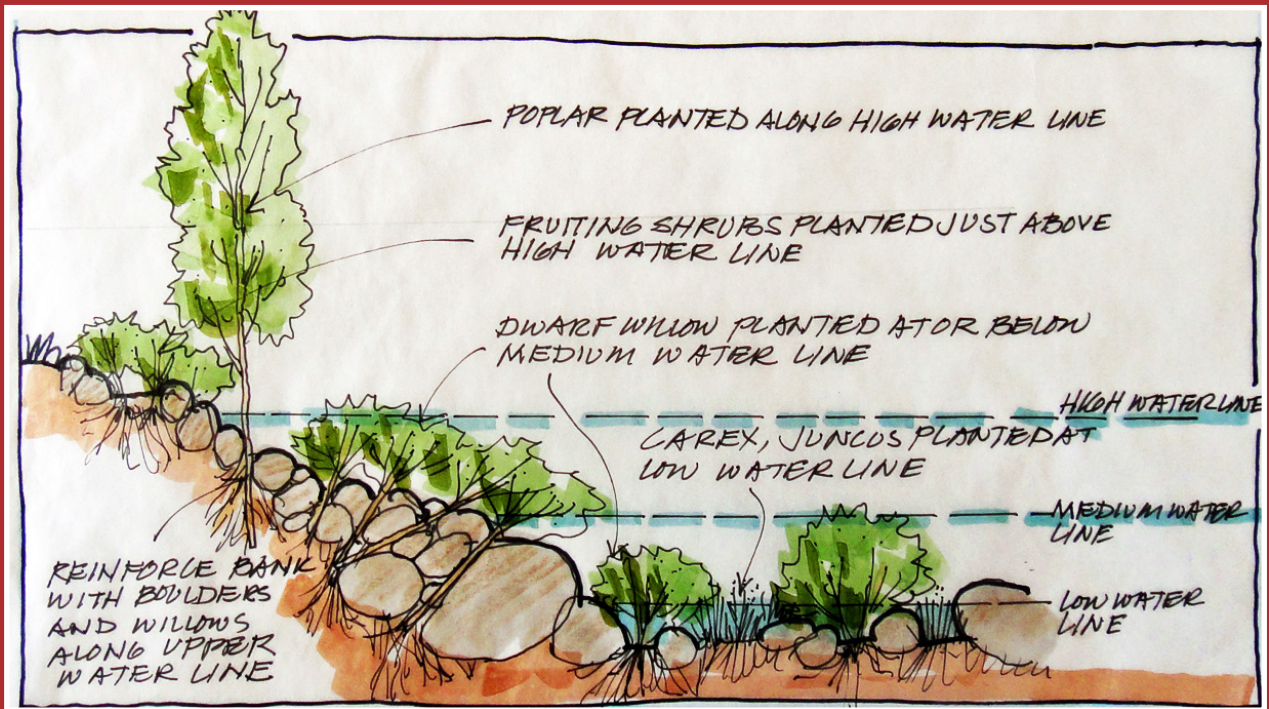 POPLAR PLANTED ALONG HIGH WATER LINE
FRUITING SHRUBS PLANTED JUST ABOVE
HIGH WATER LINE
DWARF WILLOW PLANTED AT OR BELOW
MEDIUM WATER LINE
HIGH WATER LINE
CAREX, JUNCUS PLANTED AT
LOW WATER LINE
MEDIUM WATER
LINE
LOW WATER
LINE
REINFORCE BANK
WITH BOULDERS
AND WILLOWS
ALONG UPPER
WATER LINE